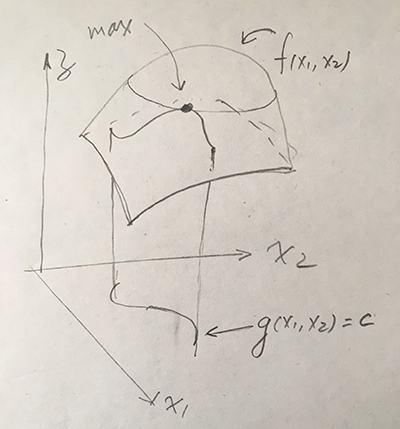 max
f(x₁, x₂)
z
x₂
g(x₁, x₂) = c
x₁